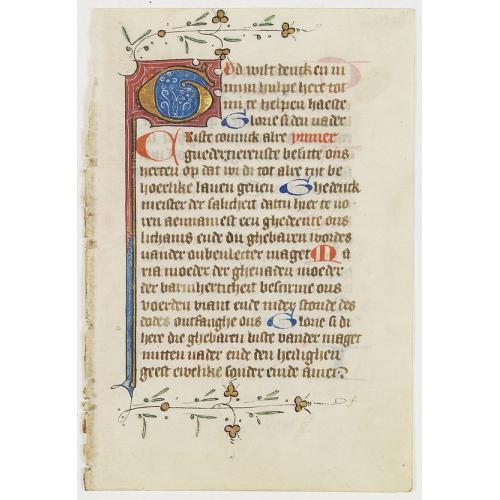 God wilt denck en in
minn hulpe here tot
mi te helpen haeste
Glorie si den vader
Criste coninck alre ynnier
guedertierenste besitte ons
herten op dat wi di tot alre tijt be
hoerlike laven geven Ghedenck
meister der salicheit dattu hier te vo
ren aennamest een ghedeente ons
lichams ende du ghebaren wordes
vander onbevlecter maget Ma
ria moeder der ghenaden moeder
der barmherticheit bescirme ons
voerden viant ende inder stonde des
dodes ontfanghe ons Glorie si di
here die ghebaren biste vander maget
mitten vader ende den heiligheen
geest ewelike sonder einde amen